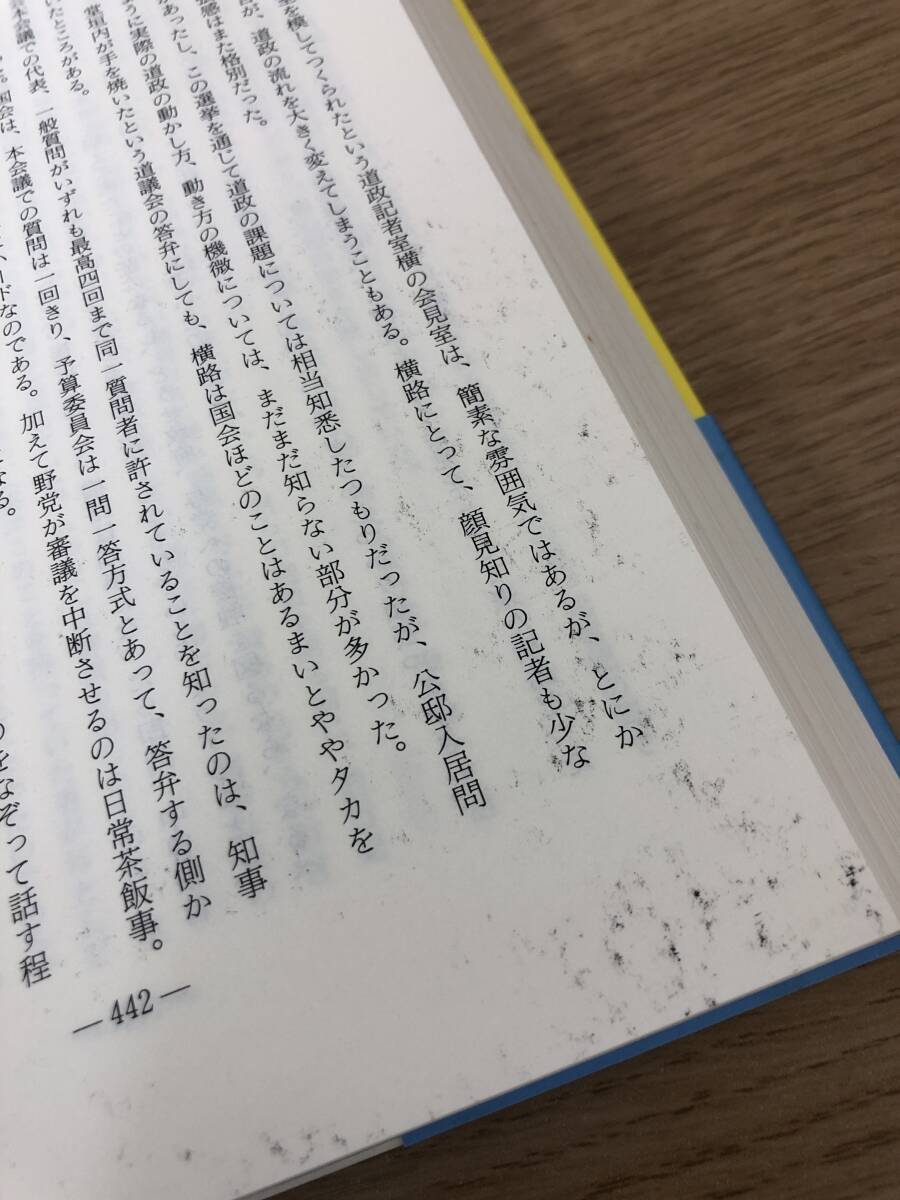 室を模してつくられたという道政記者室横の会見室は、簡素な雰囲気ではあるが、とにか
が、道政の流れを大きく変えてしまうこともある。横路にとって、顔見知りの記者も少な
感はまた格別だった。
があったし、この選挙を通じて道政の課題については相当知悉したつもりだったが、公邸入居問
うに実際の道政の動かし方、動き方の機微については、まだまだ知らない部分が多かった。
堂垣内が手を焼いたという道議会の答弁にしても、横路は国会ほどのことはあるまいとややタカを
いたところがある。
本会議での代表、一般質問がいずれも最高四回まで同一質問者に許されていることを知ったのは、知事
。国会は、本会議での質問は一回きり、予算委員会は一問一答方式とあって、答弁する側か
ドなのである。加えて野党が審議を中断させるのは日常茶飯事。
なる。
のをなぞって話す程
— 442 —